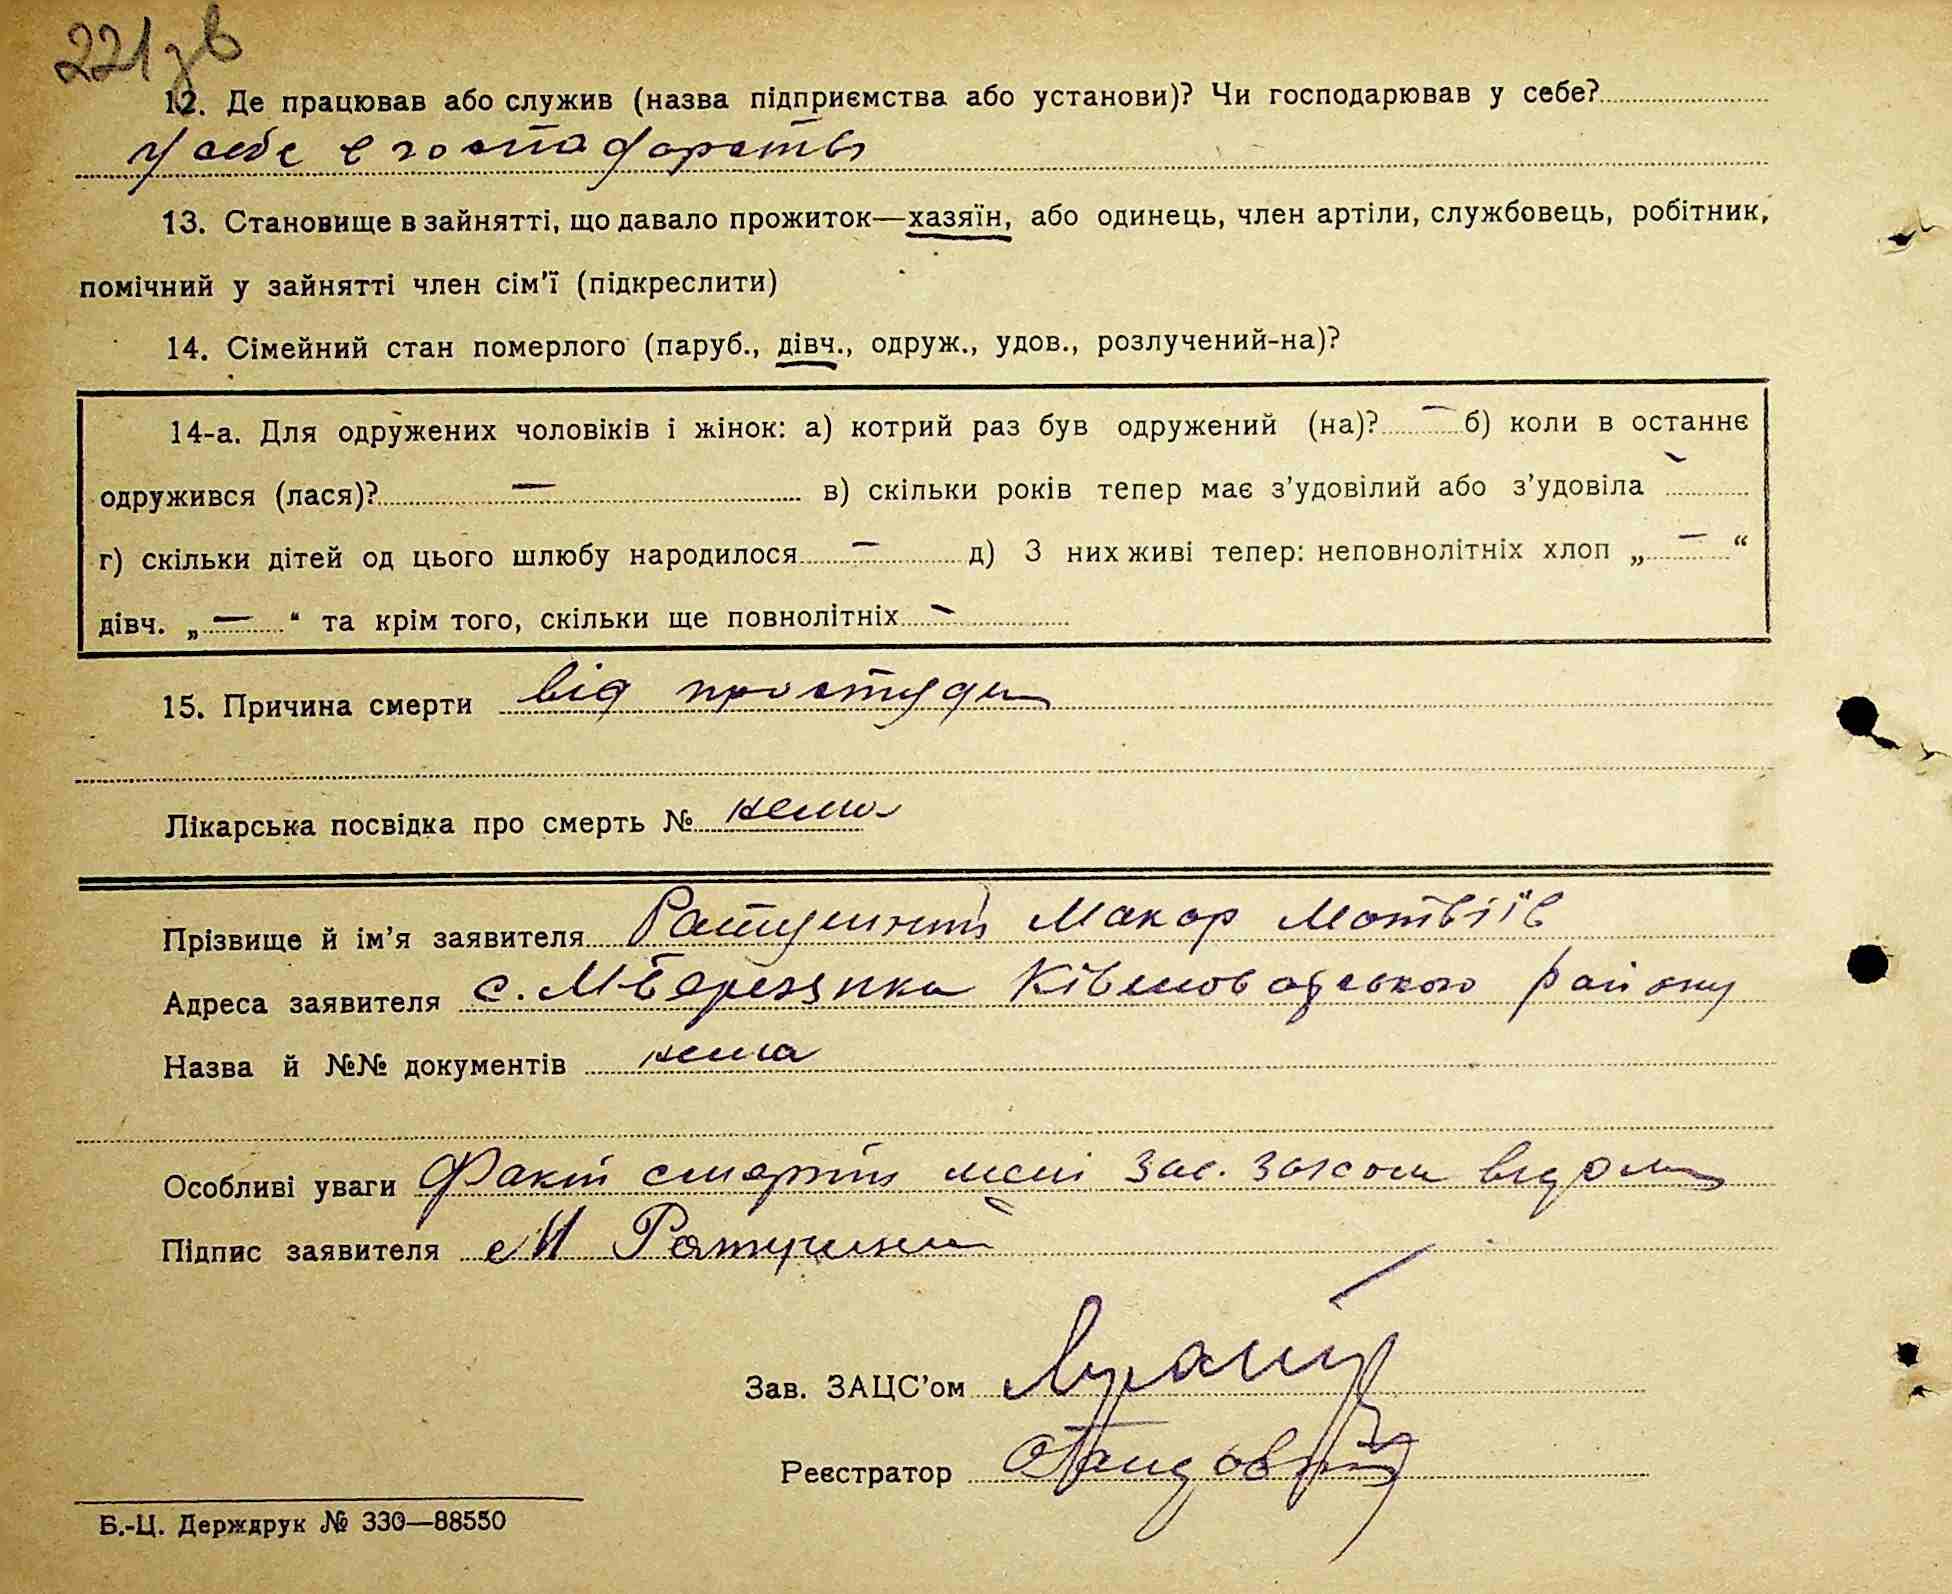 221зв
12. Де працював або служив (назва підприємства або установи)? Чи господарював у себе?
У себе в господарстві
13. Становище в зайнятті, що давало прожиток—хазяїн, або одинець, член артіли, службовець, робітник,
помічний у зайнятті член сім'ї (підкреслити)
14. Сімейний стан померлого (паруб., дівч., одруж., удов., розлучений-на)?
14-а. Для одружених чоловіків і жінок: а) котрий раз був одружений (на)? — б) коли в останнє
одружився (лася)? — в) скільки років тепер має з'удовілий або з'удовіла —
г) скільки дітей од цього шлюбу народилося — д) З них живі тепер: неповнолітніх хлоп „—“
дівч. „—“ та крім того, скільки ще повнолітніх —
15. Причина смерти від простуди
Лікарська посвідка про смерть № нема
Прізвище й ім'я заявителя Ратушний Макар Матвіїв
Адреса заявителя с. М Березянка району
Назва й №№ документів нема
Особливі уваги Факт смерти мені відом
Підпис заявителя М Ратушний
Зав. ЗАЦС'ом
Реєстратор
Б.-Ц. Держдрук № 330—88550